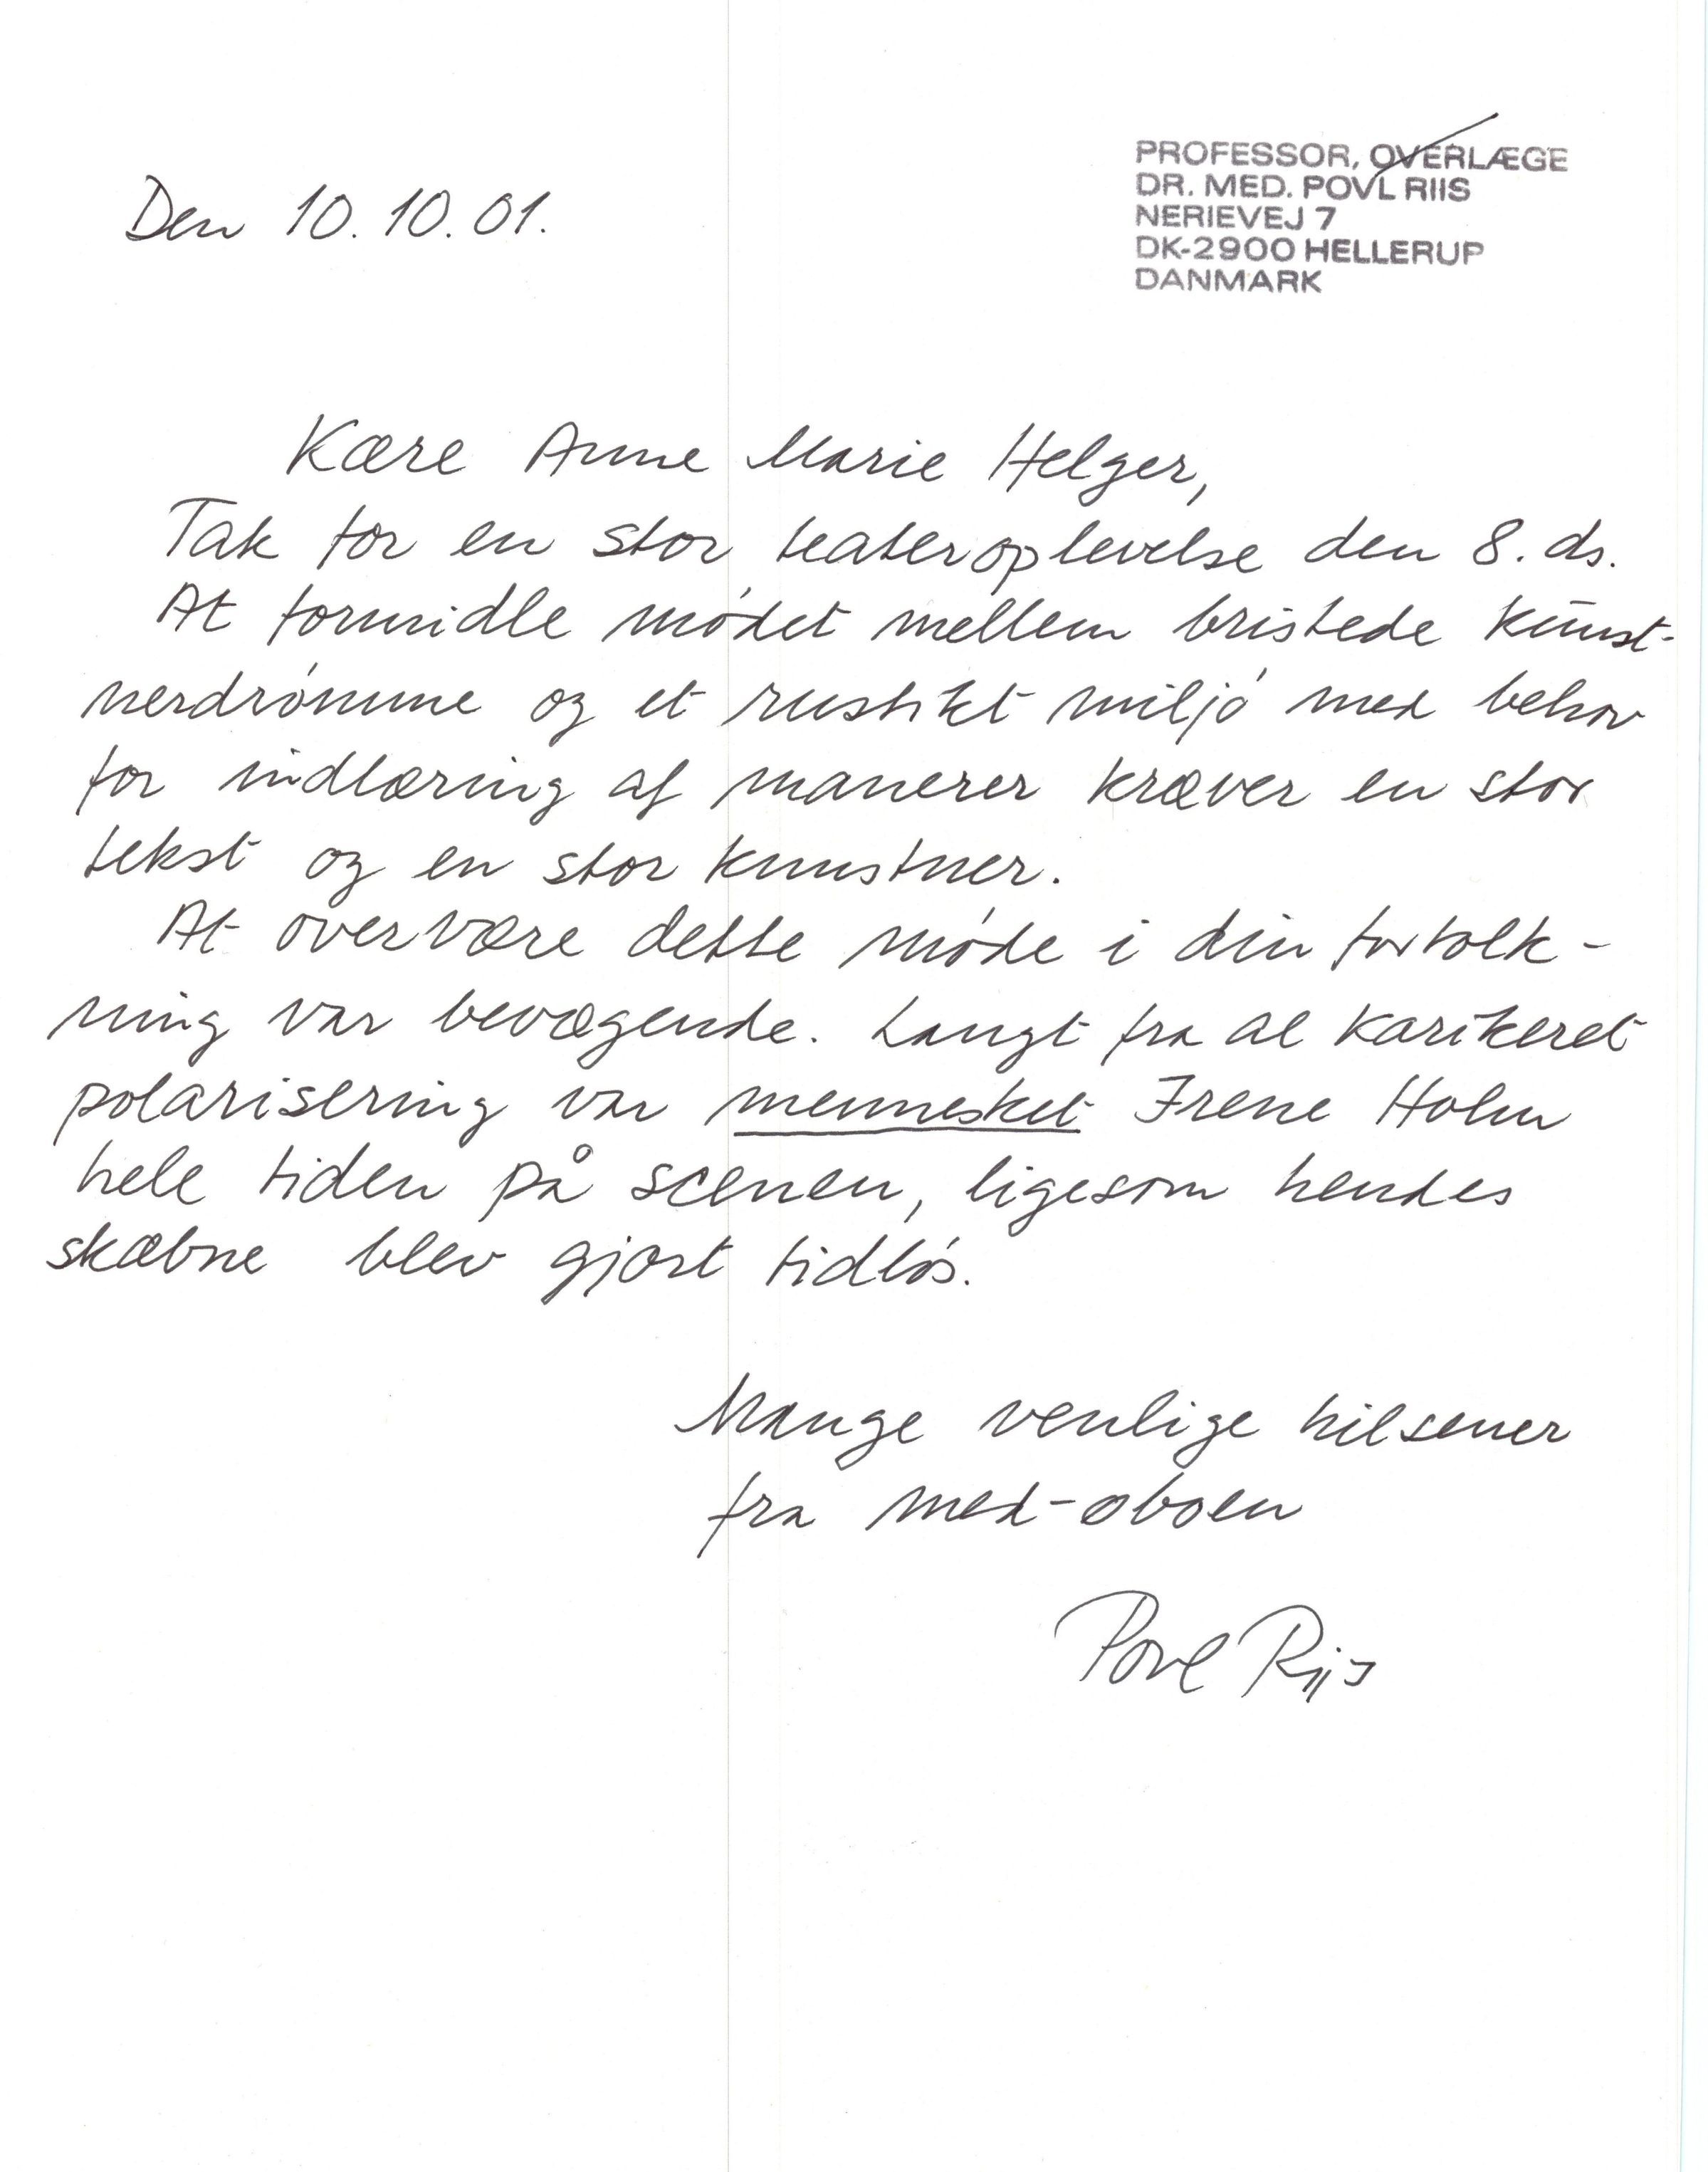 PROFESSOR, OVERLÆGE
DR. MED. POVL RIIS
NERIEVEJ 7
DK-2900 HELLERUP
DANMARK
Den 10.10.01.
Kære Anne Marie Helger,
Tak for en stor teateroplevelse den 8. ds.
At formidle mødet mellem bristede kunst-
nerdrømme og et rustikt miljø med behov
for indlæring af manerer kræver en stor
tekst og en stor kunstner.
At overvære dette møde i din fortolk-
ning var bevægende. Langt fra al karikeret
polarisering var mennesket Irene Holm
hele tiden på scenen, ligesom hendes
skæbne blev gjort tidløs.
Mange venlige hilsener
fra med-oboen
Povl Riis